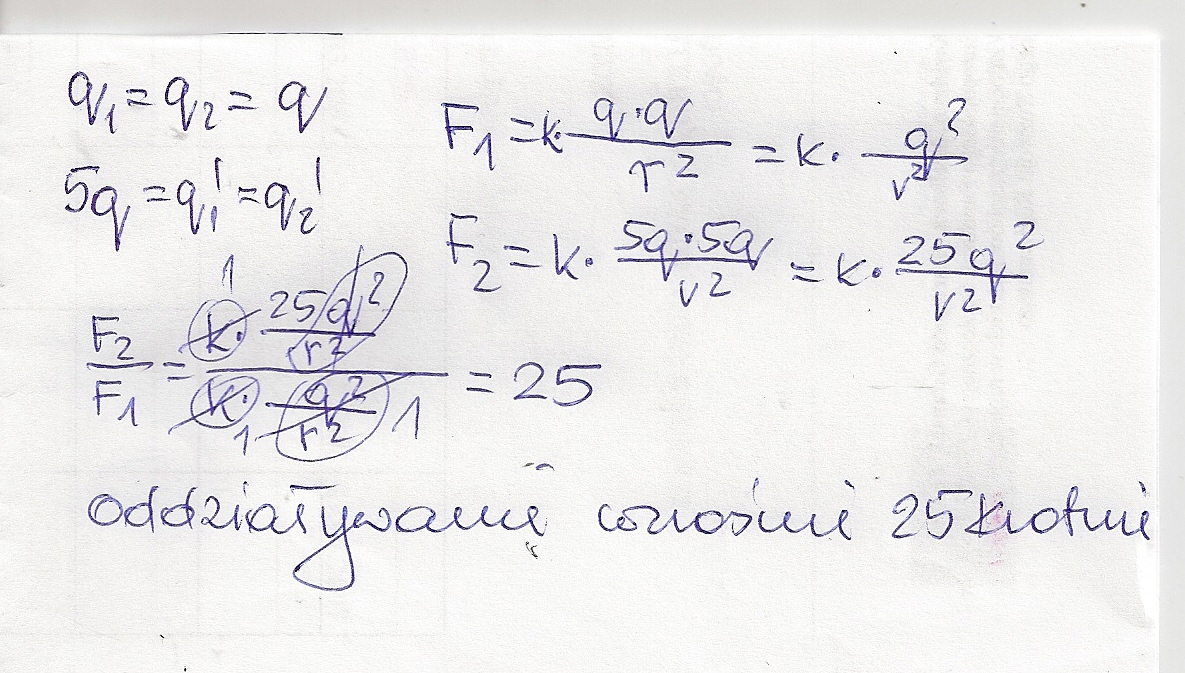 q₁ = q₂ = q
5q = q₁' = q₂'
F₁ = k · q·q / r² = k · q² / r²
F₂ = k · 5q·5q / r² = k · 25q² / r²
F₂ / F₁ = (k · 25q² / r²) / (k · q² / r²) = 25
1
1 1
oddziaływanie wzrośnie 25 krotnie